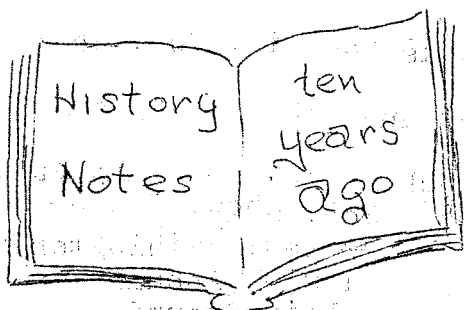 History
Notes
ten
years
ago